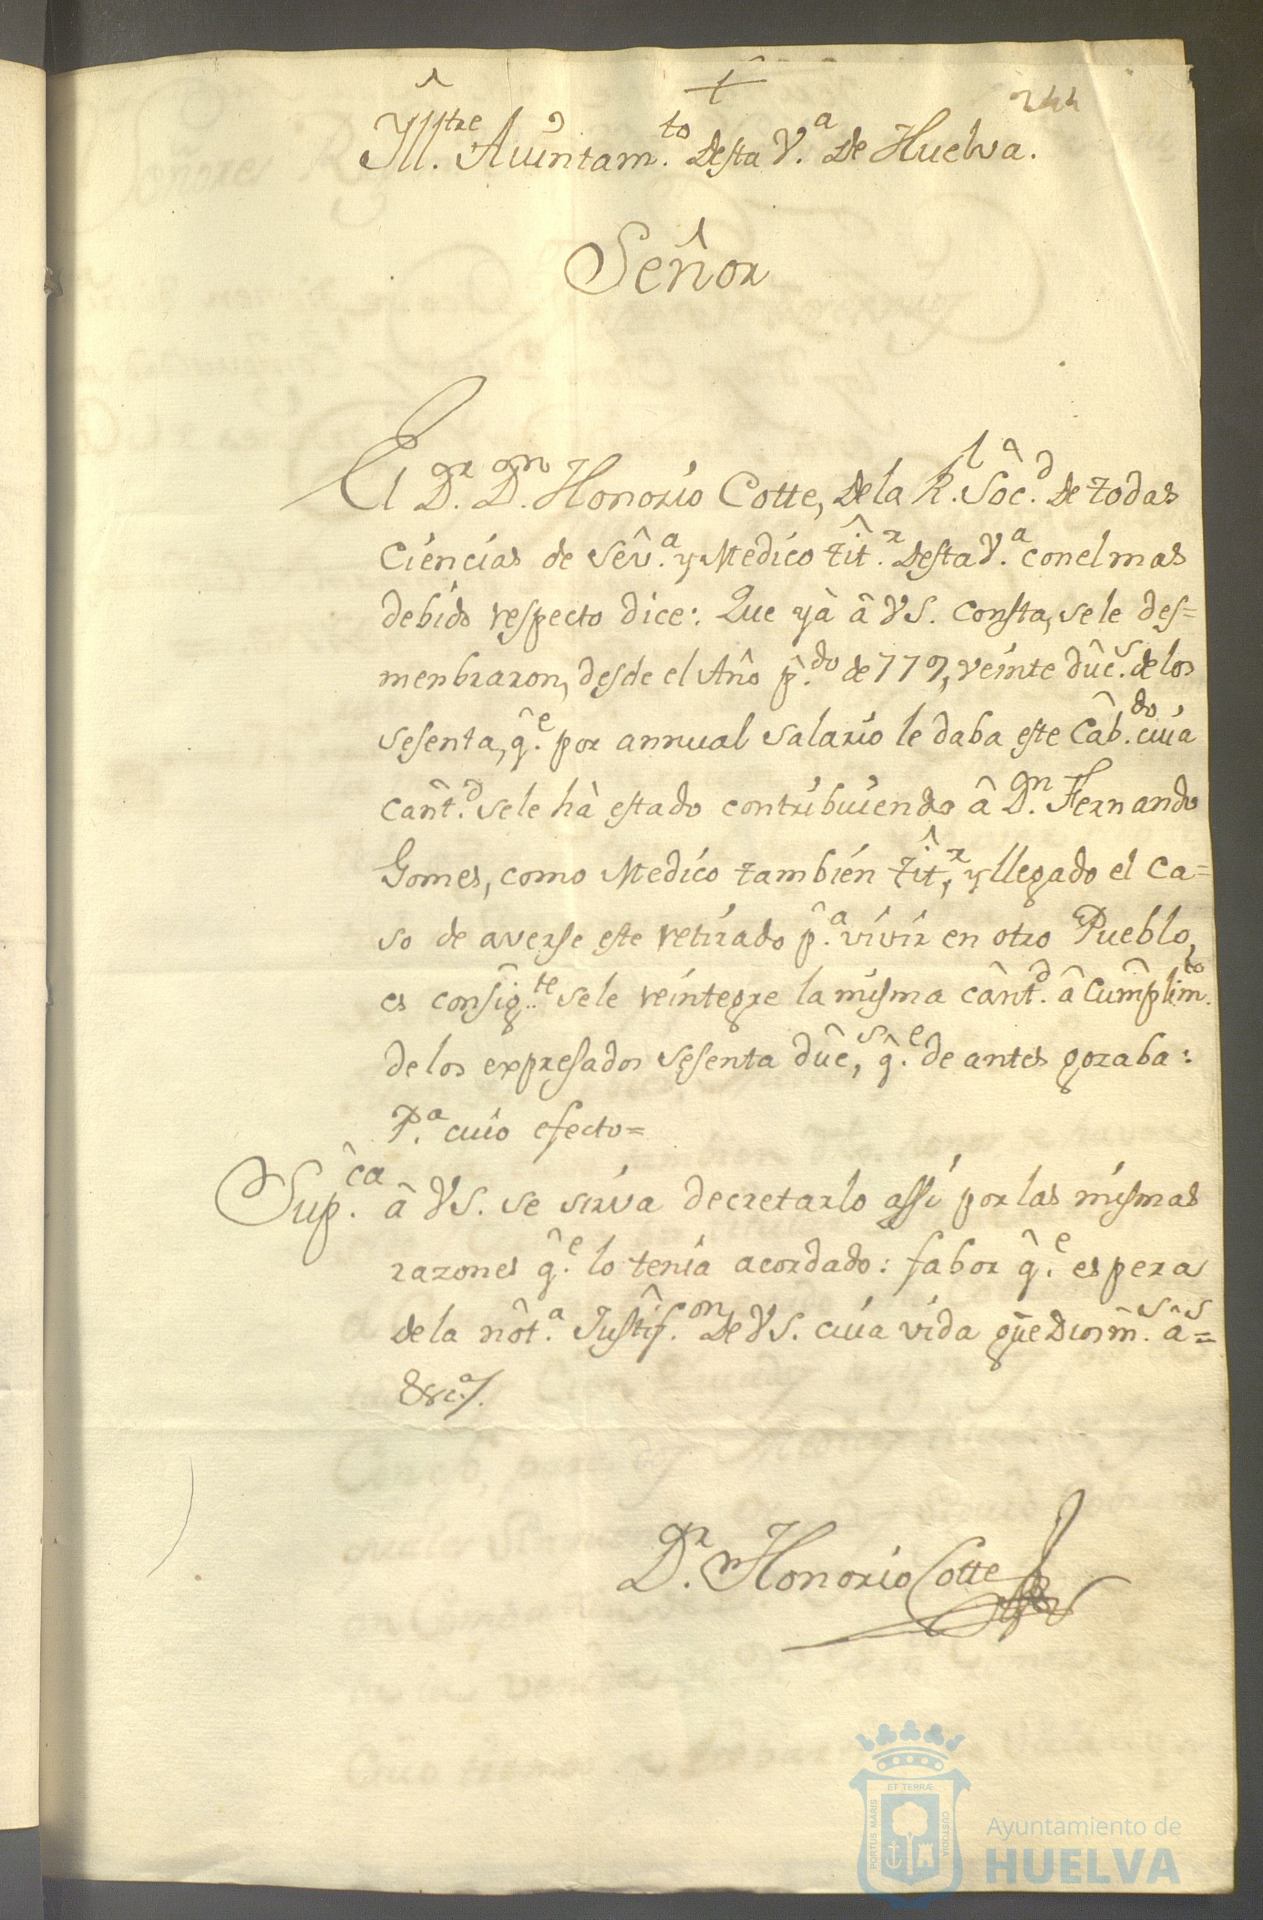 +
244
Yll.tre Aiuntam.to desta V.a de Huelva.
Señor
El D.r D.n Honorio Cotte, de la R.l Soc.d de todas
Ciencias de Sev.a y Medico tit.r desta V.a con el mas
debido respecto dice: Que yà â VS. consta, se le des=
menbraron, desde el Año p.do de 779, veinte duc.s de los
sesenta, q.e por annual salario le daba este Cab.do cuia
cant.d se le hà estado contribuiendo â D.n Fernando
Gomes, como Medico tambien tit.r, y llegado el ca=
so de averse este retirado p.a vivir en otro Pueblo,
es consig.te se le reintegre la misma cant.d â cumplim.to
de los expresados sesenta duc.s, q.e de antes gozaba:
P.a cuio efecto=
Sup.ca â VS. se sirva decretarlo assi por las mismas
razones q.e lo tenia acordado: fabor q.e espera
de la not.a Justif.on de VS. cuia vida gûe Dios m.s a.s=
&c.a/.
D.r Honorio Cotte
ET TERRÆ
PORTUS MARIS
CUSTODIA
Ayuntamiento de
HUELVA